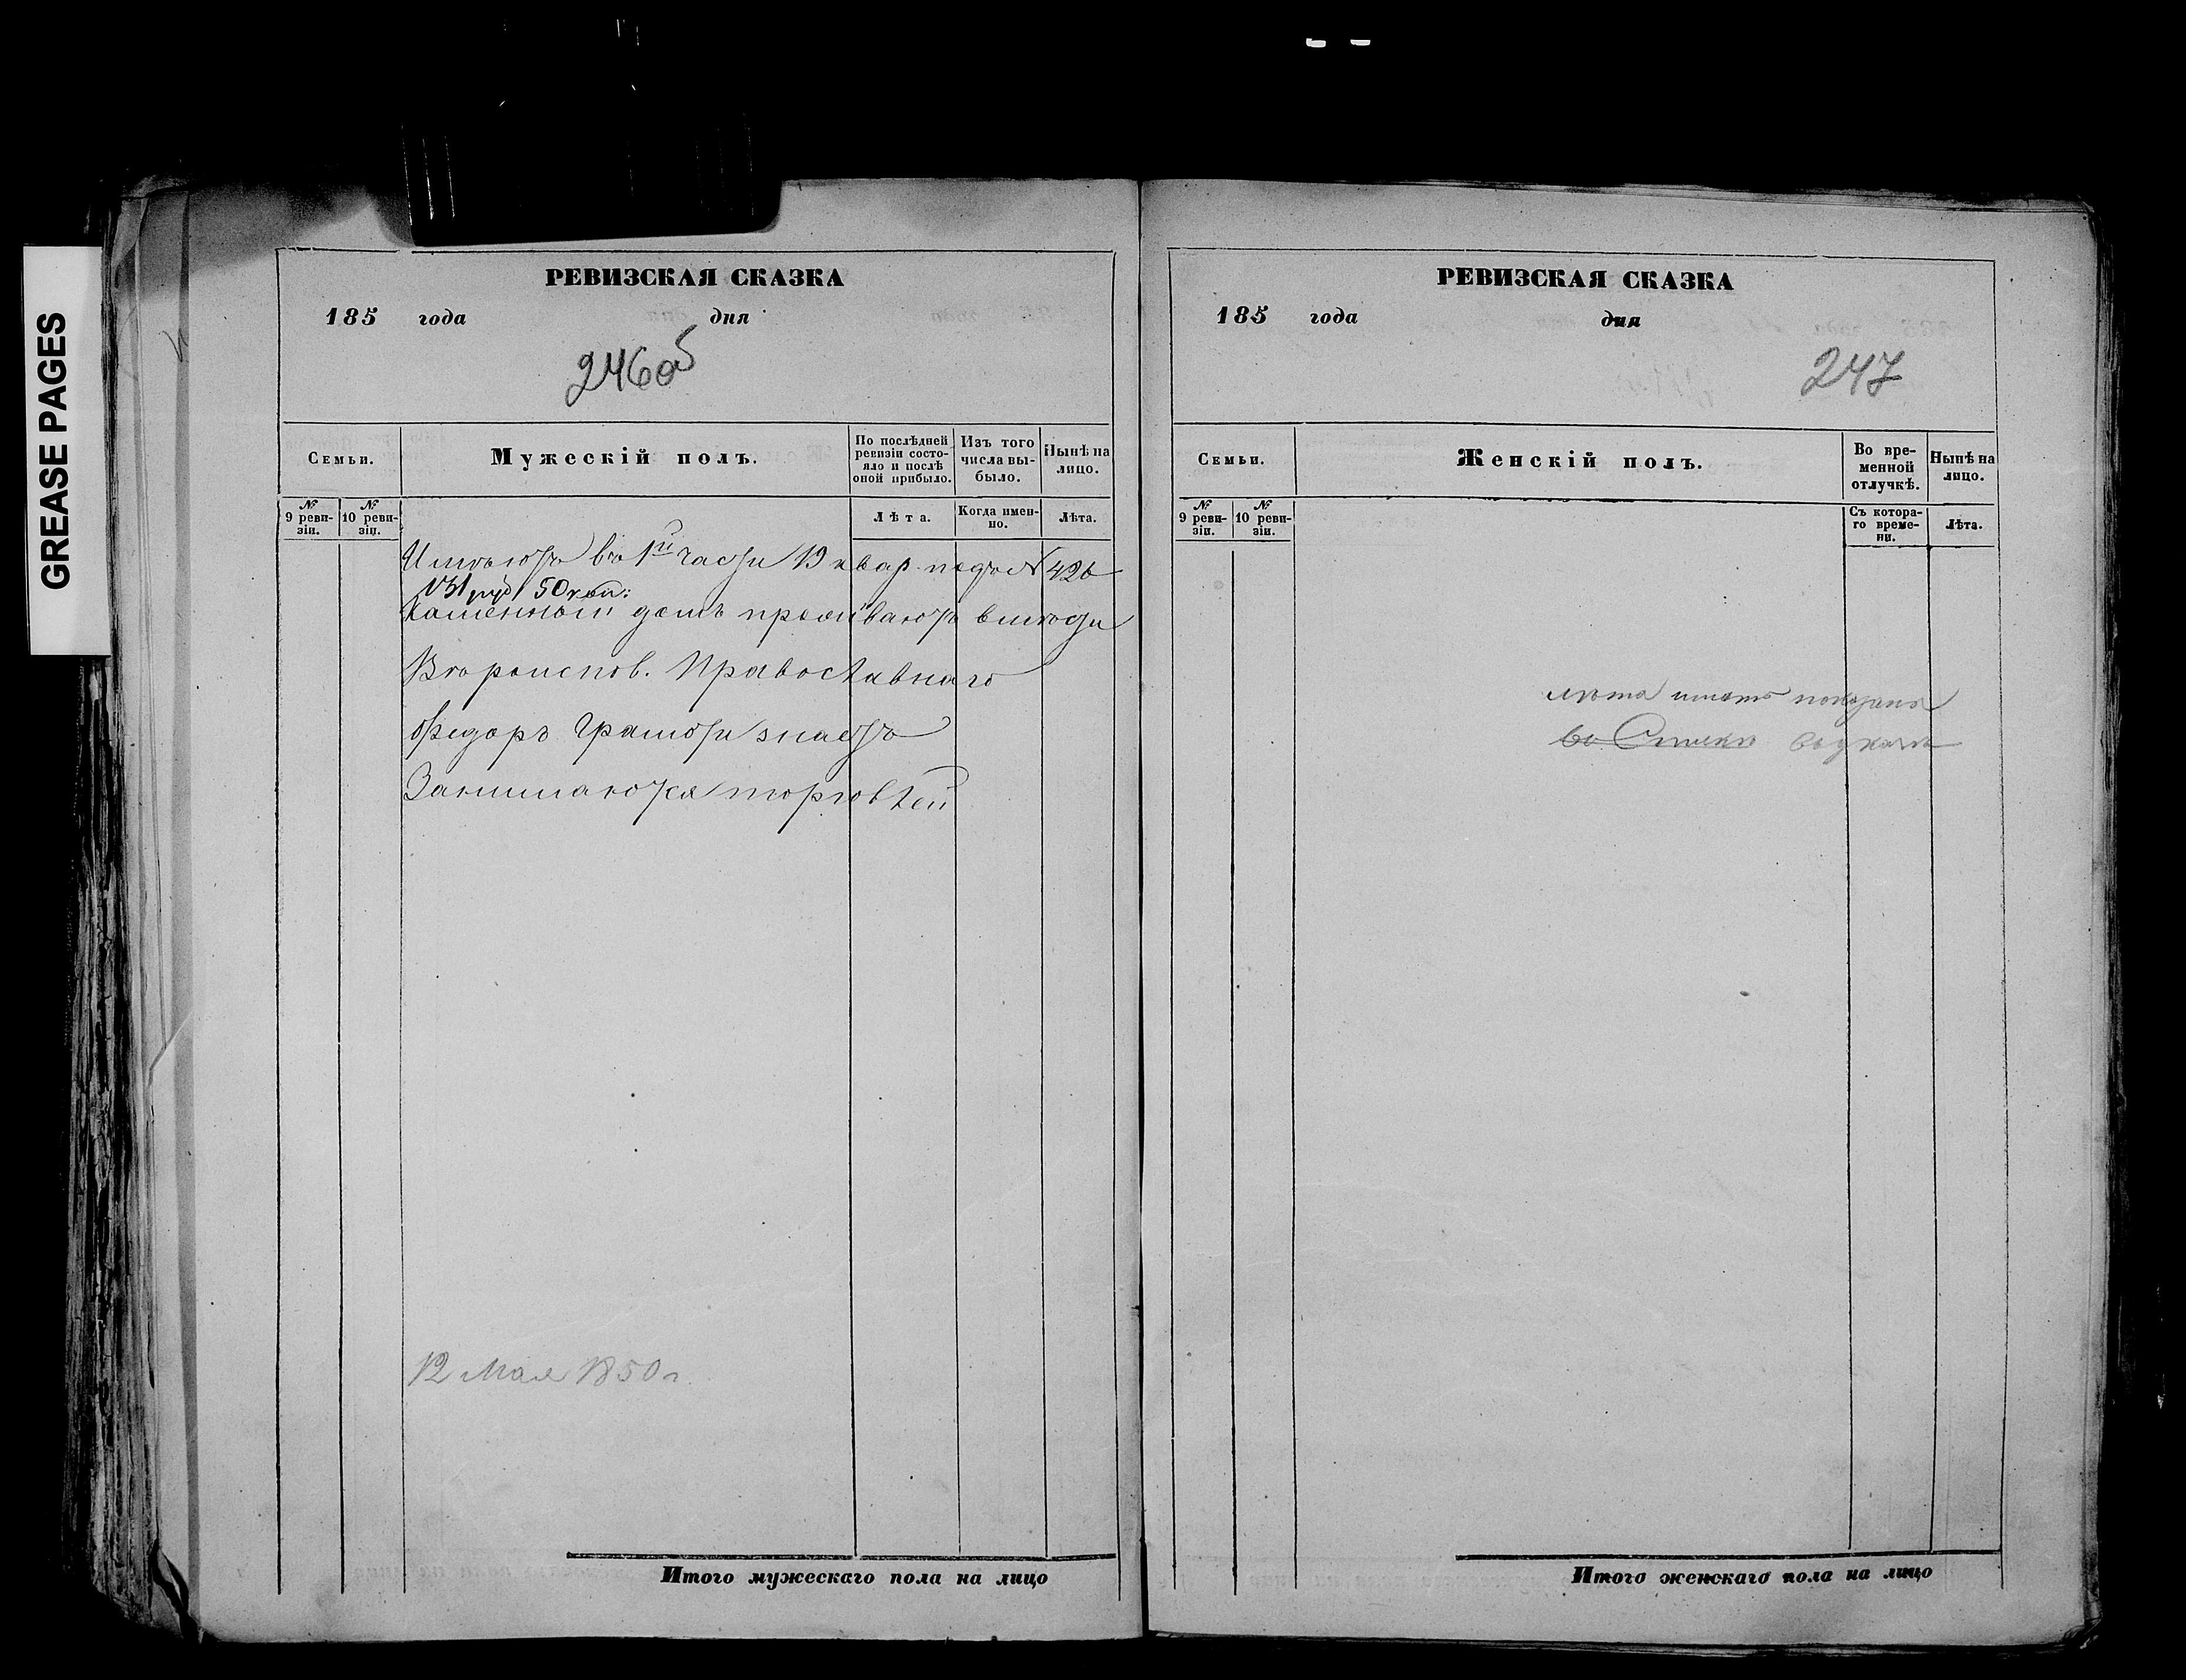 GREASE PAGES
РЕВИЗСКАЯ СКАЗКА
185 года дня
246об
Семьи.
Мужескій полъ.
По послѣдней ревизіи состояло и послѣ оной прибыло.
Изъ того числа выбыло.
Нынѣ на лицо.
№ 9 ревизіи.
№ 10 ревизіи.
Лѣта.
Когда именно.
Лѣта.
Имѣютъ въ 1й части 19 квар подъ № 426
131 руб 50 коп:
Каменный домъ проживаютъ вмѣсти
Вѣроиспов. Православнаго
Федоръ грамоти знаетъ
Занимаются торговлей
12 Мая 1850 г.
Итого мужескаго пола на лицо
РЕВИЗСКАЯ СКАЗКА
185 года дня
247
Семьи.
Женскій полъ.
Во временной отлучкѣ.
Нынѣ на лицо.
№ 9 ревизіи.
№ 10 ревизіи.
Съ котораго времени.
Лѣта.
лѣта
во
Итого женскаго пола на лицо